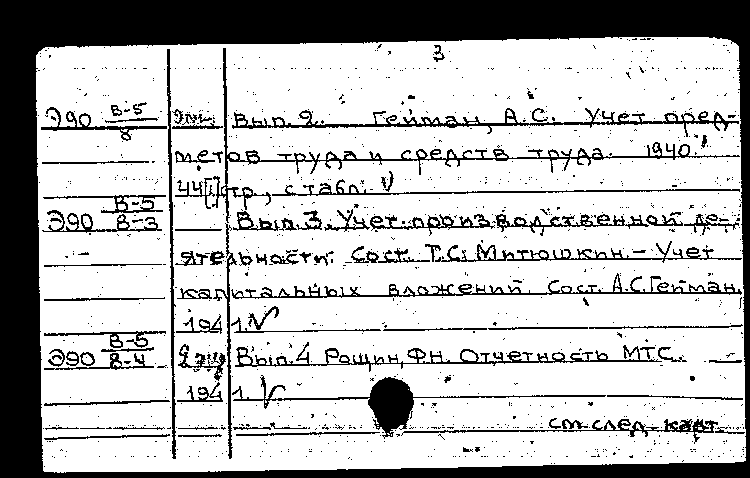 3
Э90 В-5/8 Вып. 2. Гейман, А.С. Учет пред-
метов труда и средств труда. 1940.
44[1]стр., с табл.
Э90 В-5/В-3 Вып. 3. Учет производственной де-
ятельности. Сост. Т.С. Митюшкин. – Учет
капитальных вложений. Сост. А.С. Гейман.
1941.
Э90 В-5/В-4 2 экз Вып. 4 Рощин, Ф.Н. Отчетность МТС.
1941.
см. след. карт.